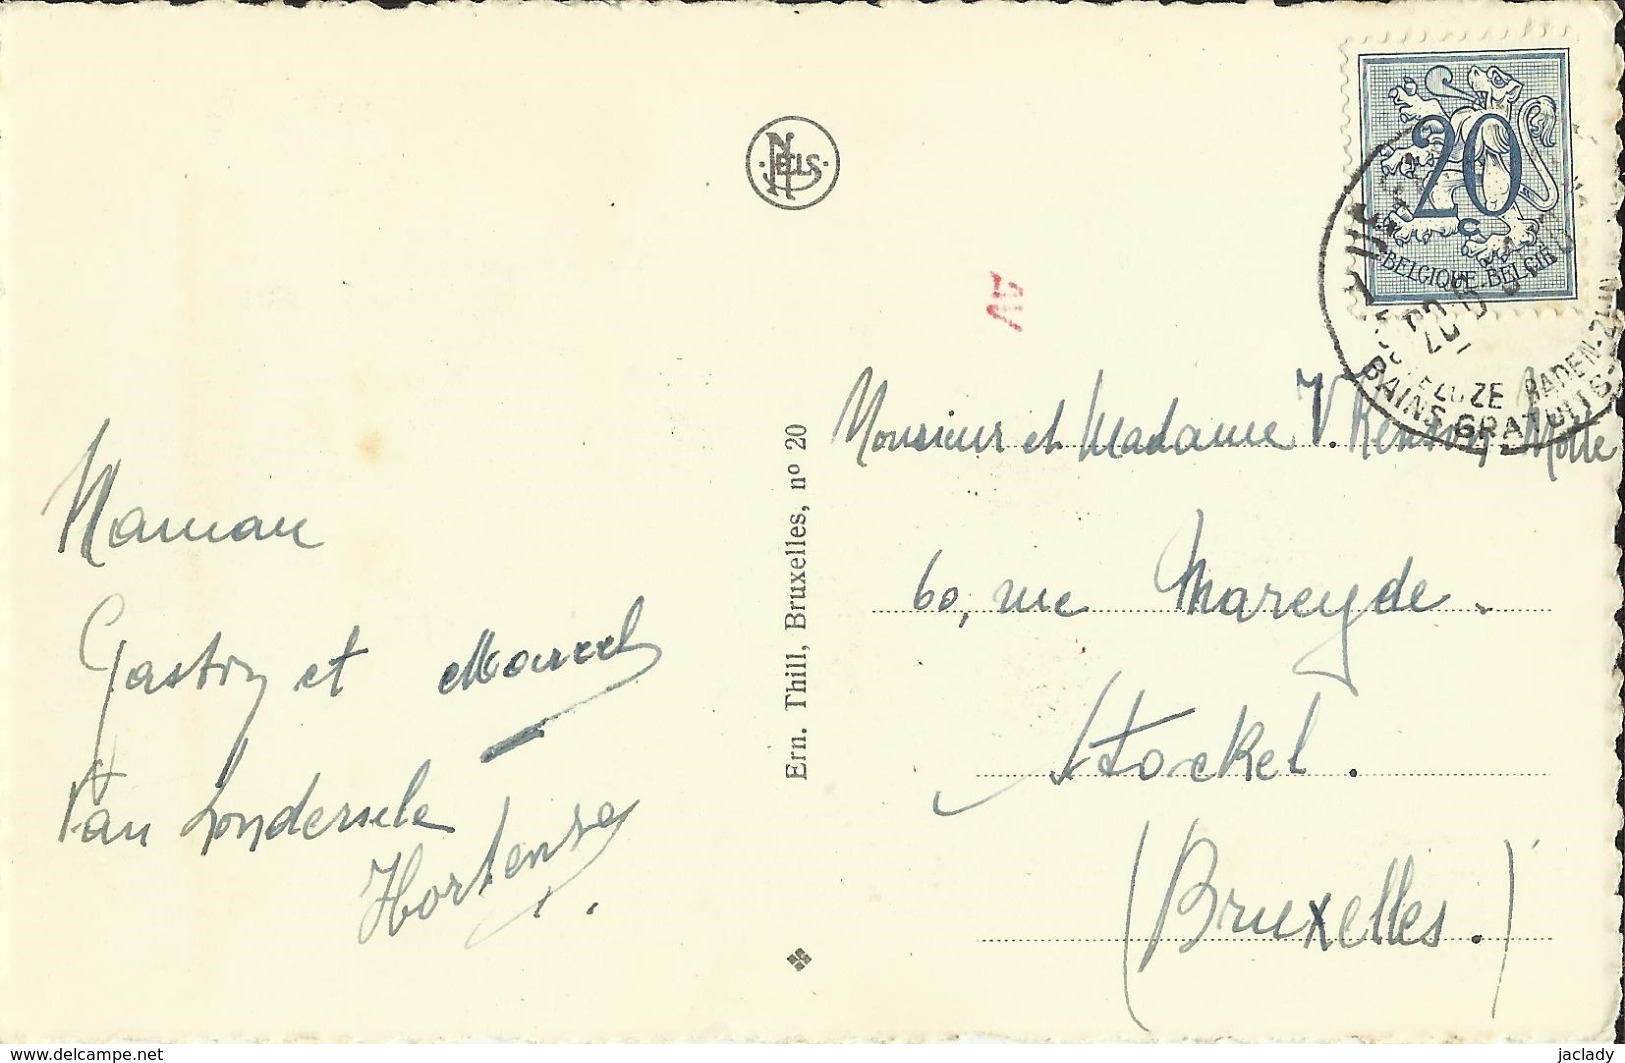 Maman
Gaston et Marcel
Van Londersele
Hortense
NELS
Ern. Thill, Bruxelles, nº 20
20
c
BELGIQUE-BELGIË
BAINS GRATUITS
BADEN-ZIJN
Monsieur et Madame V. Renson Motte
60, rue Mareyde.
Stockel.
(Bruxelles.)
www.delcampe.net
jaclady